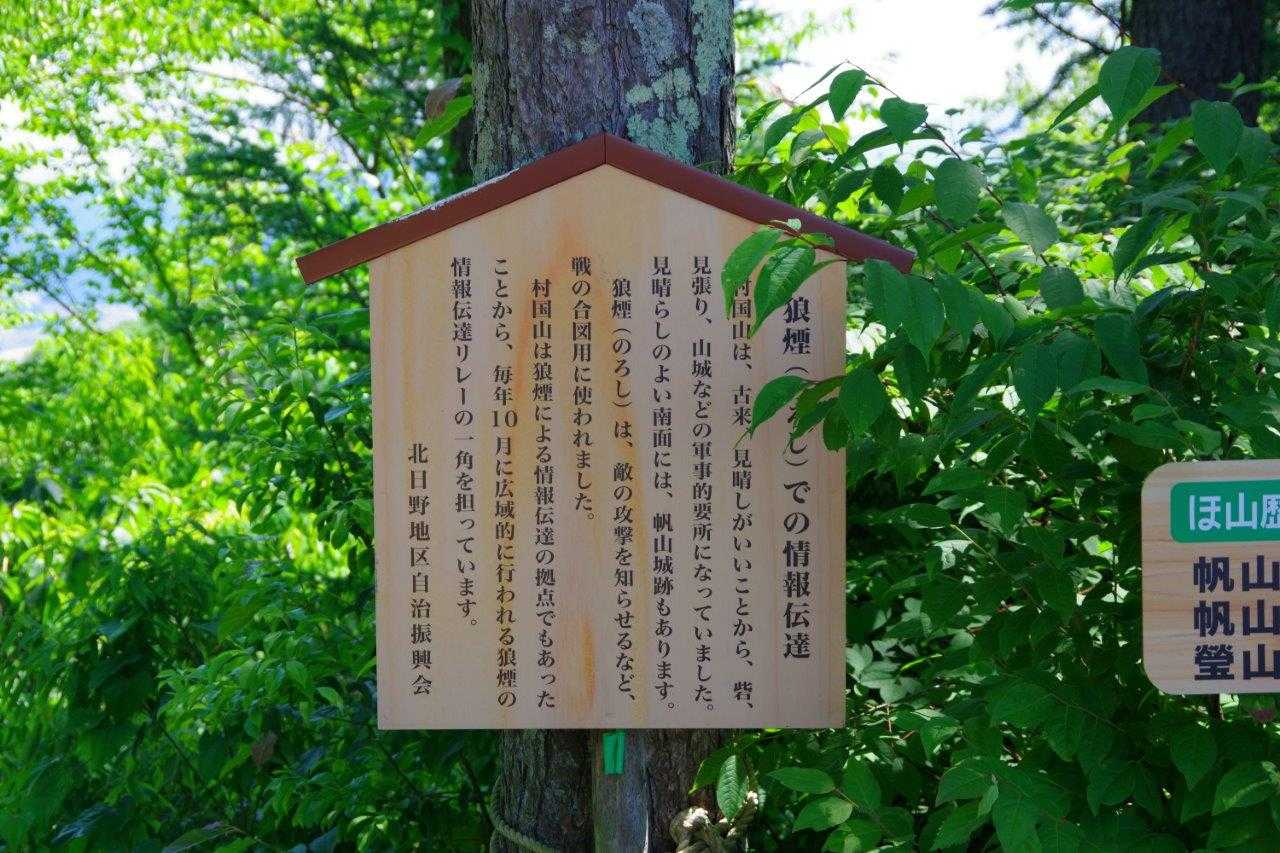 狼煙（のろし）での情報伝達
村国山は、古来、見晴しがいいことから、砦、
見張り、山城などの軍事的要所になっていました。
見晴らしのよい南面には、帆山城跡もあります。
狼煙（のろし）は、敵の攻撃を知らせるなど、
戦の合図用に使われました。
村国山は狼煙による情報伝達の拠点でもあった
ことから、毎年10月に広域的に行われる狼煙の
情報伝達リレーの一角を担っています。
北日野地区自治振興会
ほ山歴
帆山
帆山
瑩山